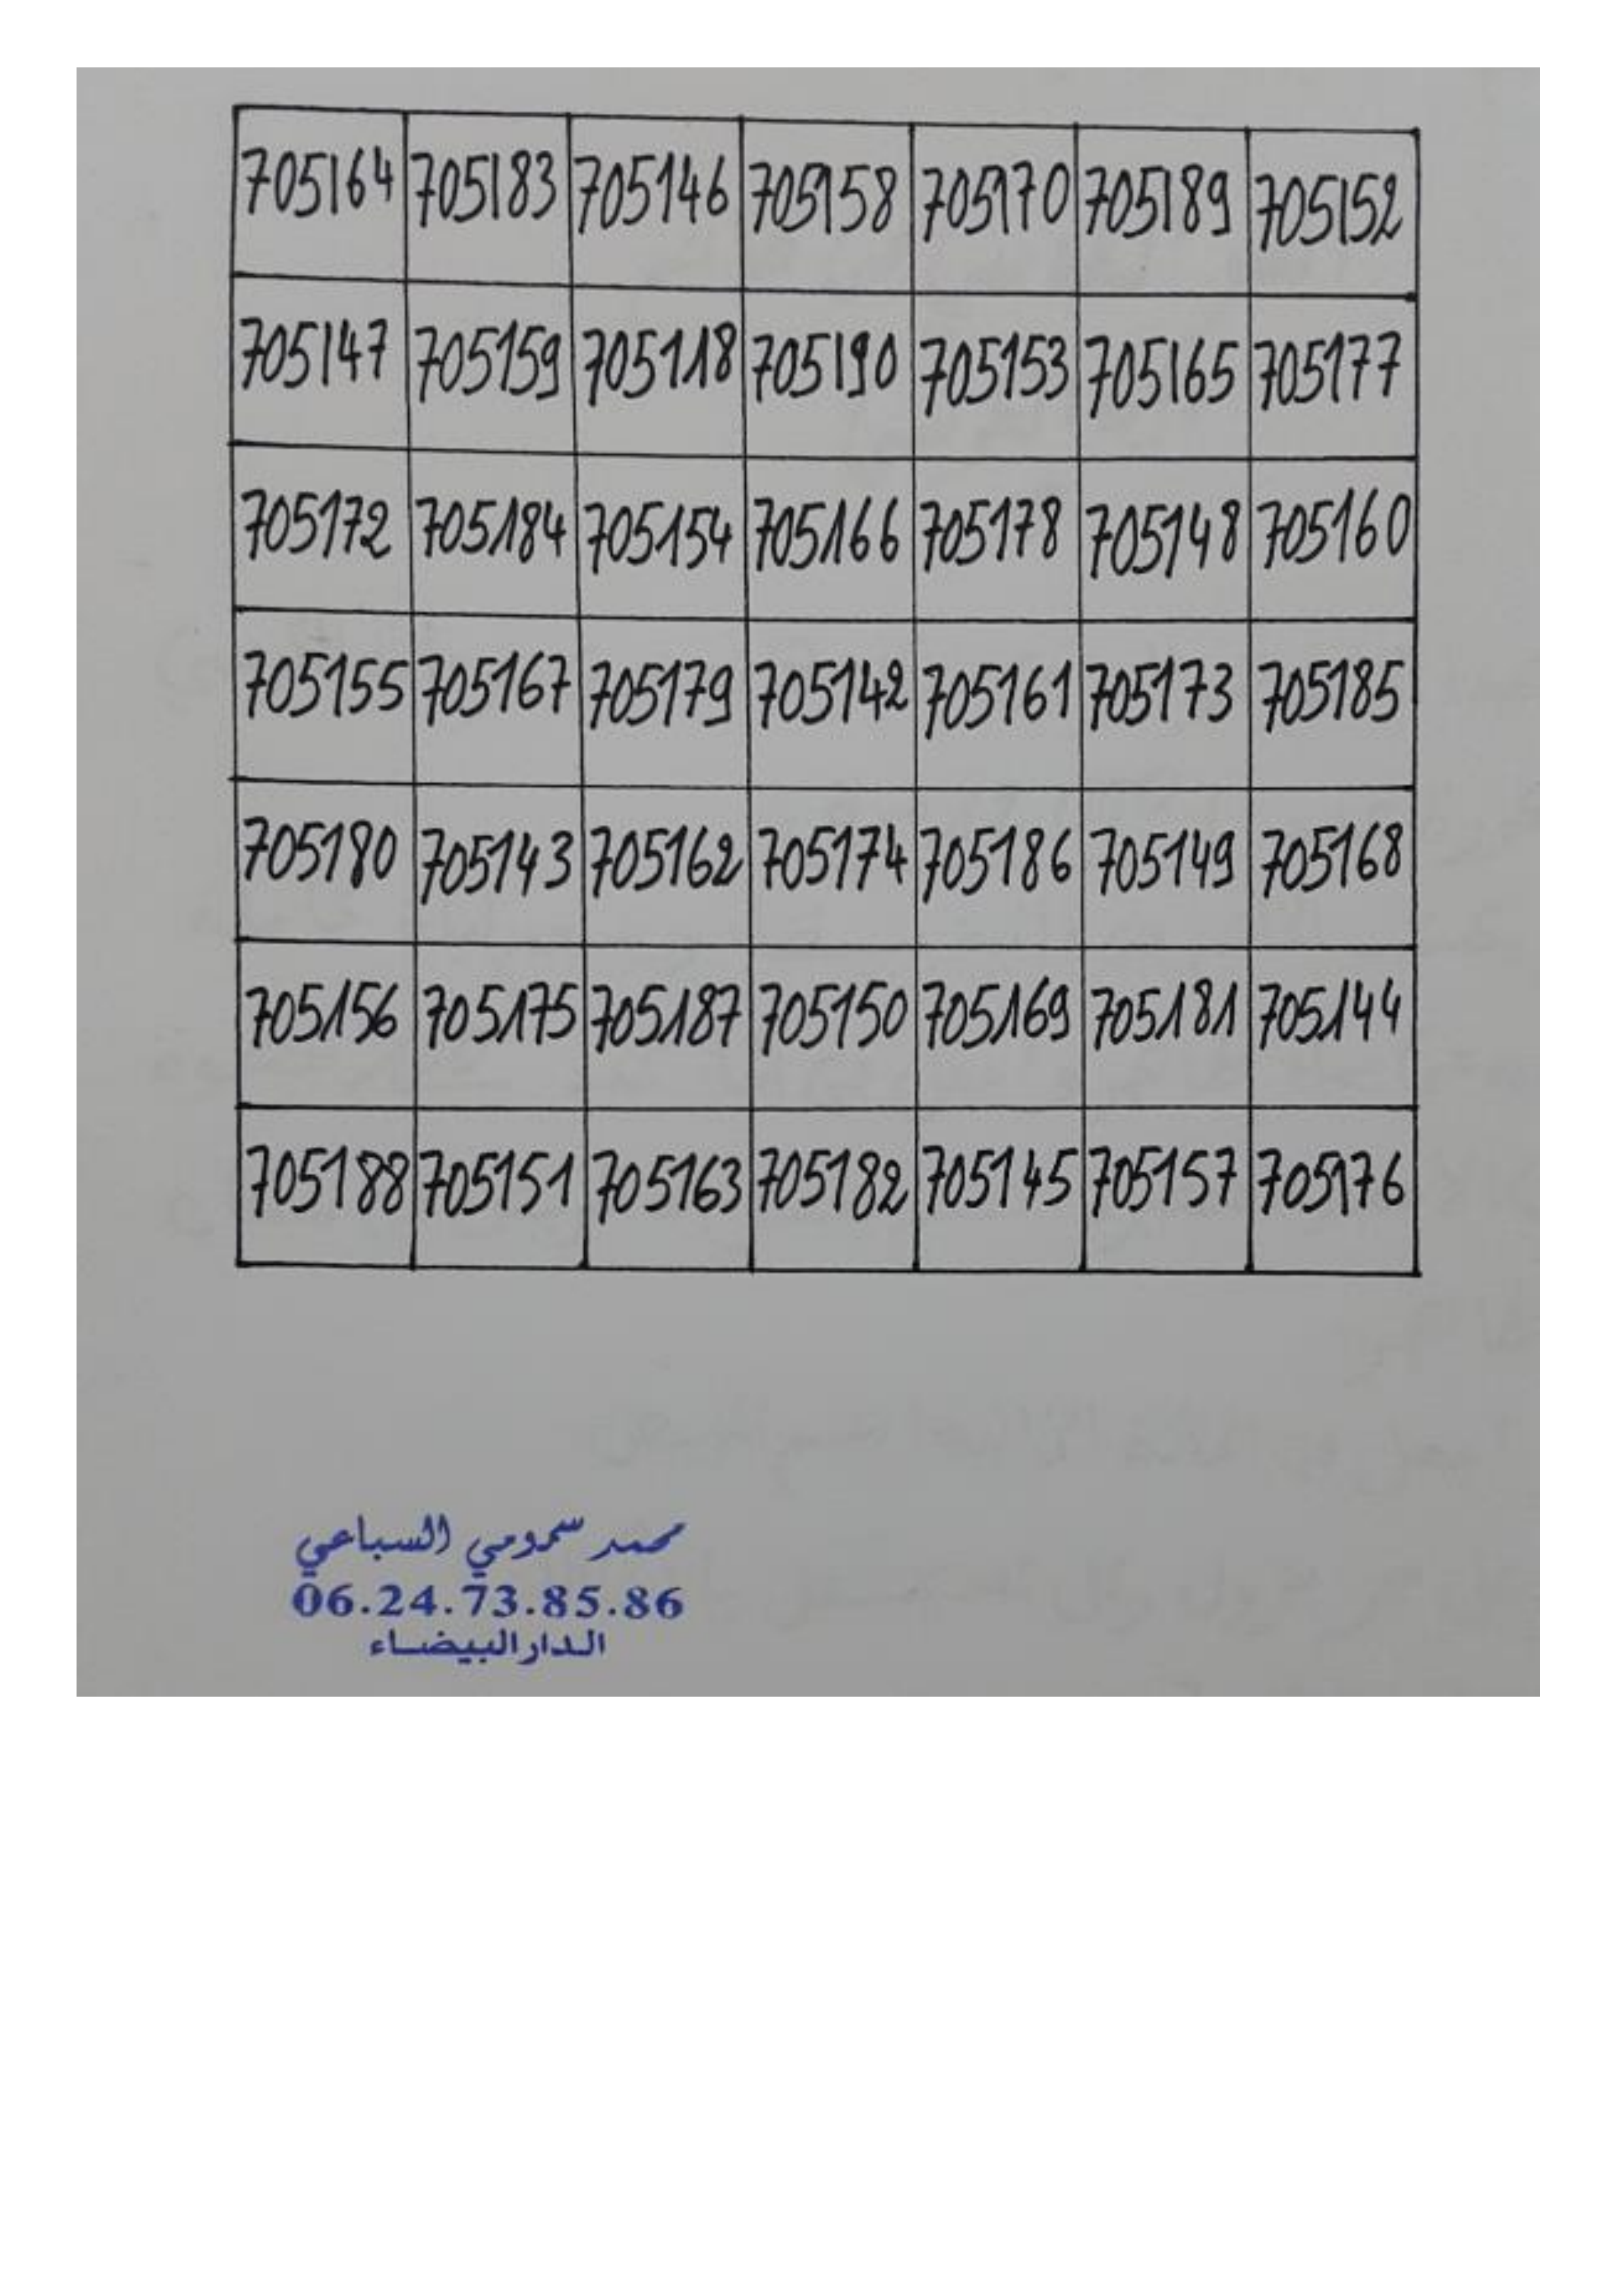 705164 705183 705146 705158 705170 705189 705152
705147 705159 705118 705190 705153 705165 705177
705172 705184 705154 705166 705178 705148 705160
705155 705167 705179 705142 705161 705173 705185
705180 705143 705162 705174 705186 705149 705168
705156 705175 705187 705150 705169 705181 705144
705188 705151 705163 705182 705145 705157 705176
محمد سمومي السباعي
06.24.73.85.86
الدار البيضاء